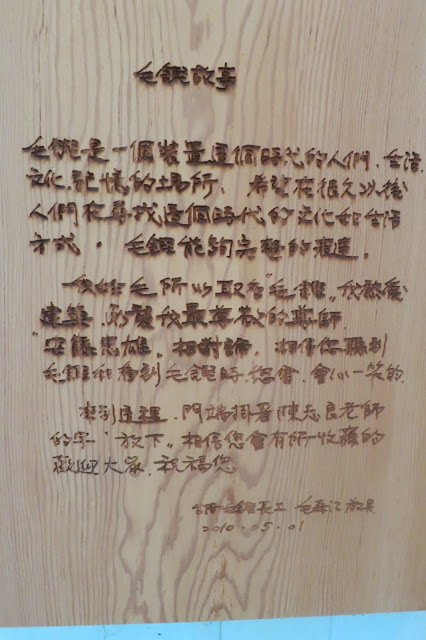 毛屋故事
毛屋是一個裝置這個時代的人們、生活、
文化、記憶的場所、希望在很久以後
人們在尋找這個時代的文化如生活
方式，毛屋能夠完整的
我姓毛所以取名"毛屋"，我熱愛
建築、我最尊敬的恩師
"安藤忠雄"相討論，相信您聽到
毛屋時，您會、會心一笑的
門端掛著陳志良老師
的字"放下"，相信您會有所收穫的
歡迎大家、祝福您
毛森江敬具
2010.05.01